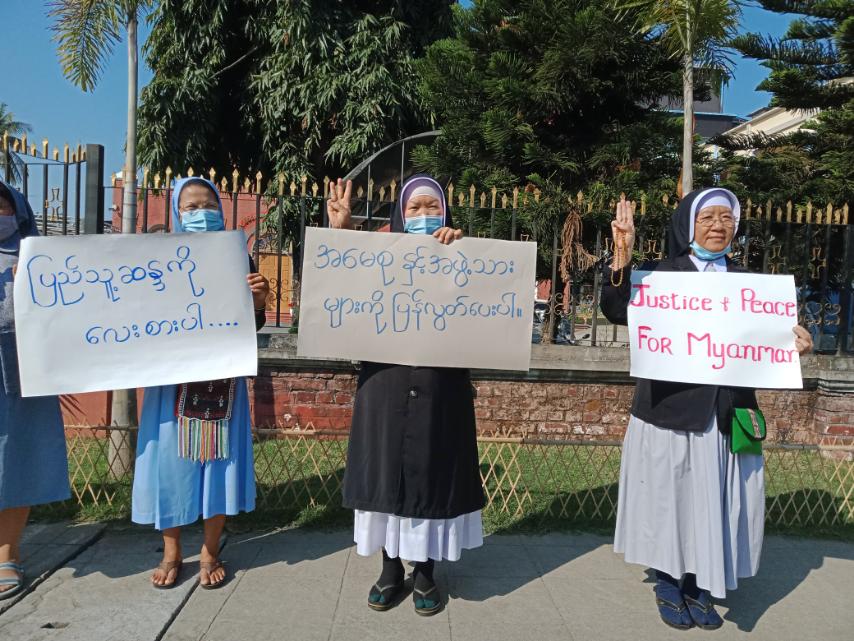 ပြည်သူ့ဆန္ဒကို
လေးစားပါ....
အမေစု နှင့်အဖွဲ့သား
များကို ပြန်လွှတ်ပေးပါ။
Justice + Peace
FOR Myanmar